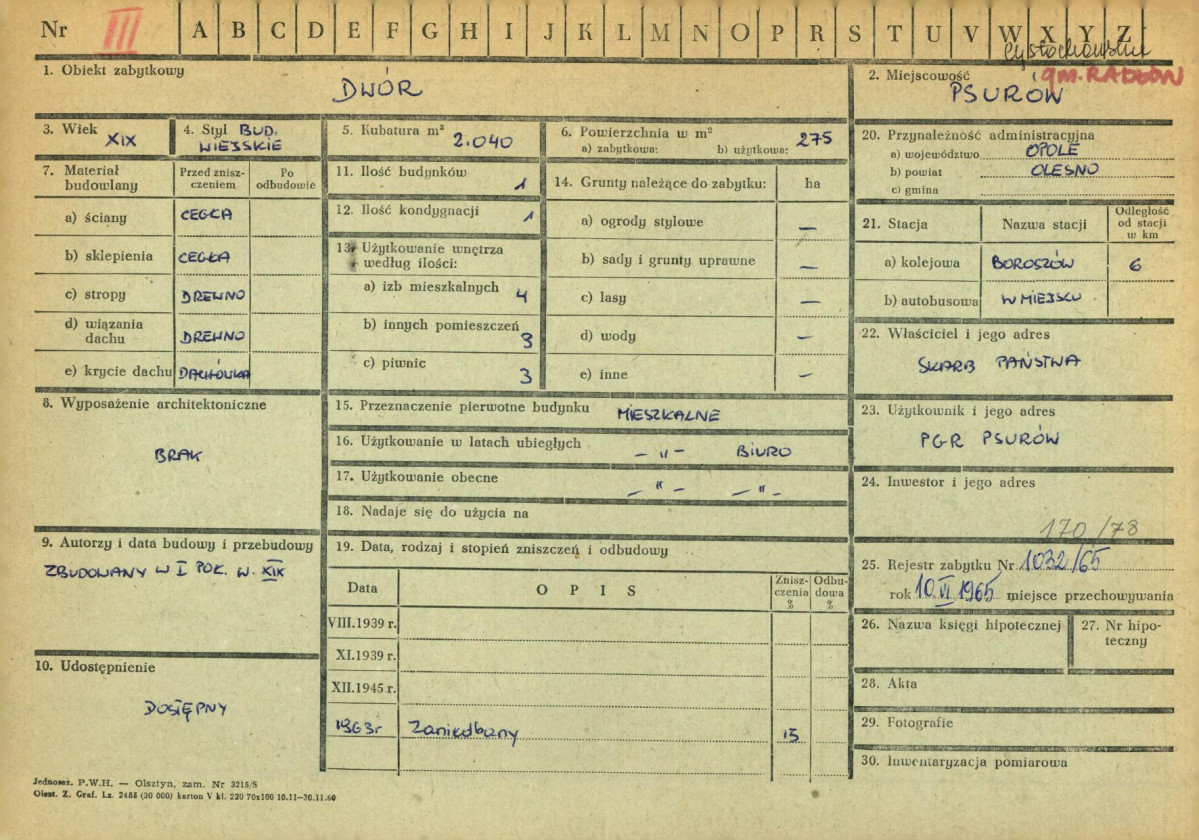 Nr III A B C D E F G H I J K L M N O P R S T U V W X Y Z
gm. RADŁÓW
1. Obiekt zabytkowy
DWÓR
2. Miejscowość
PSURÓW
3. Wiek XIX
4. Styl BUD. WIEJSKIE
5. Kubatura m³ 2.040
6. Powierzchnia w m²
a) zabytkowa: b) użytkowa: 275
7. Materiał budowlany
Przed zniszczeniem
Po odbudowie
a) ściany CEGŁA
b) sklepienia CEGŁA
c) stropy DREWNO
d) wiązania dachu DREWNO
e) krycie dachu DACHÓWKA
8. Wyposażenie architektoniczne
BRAK
9. Autorzy i data budowy i przebudowy
ZBUDOWANY W I POŁ. W. XIX
10. Udostępnienie
DOSTĘPNY
11. Ilość budynków 1
12. Ilość kondygnacji 1
13. Użytkowanie wnętrza według ilości:
a) izb mieszkalnych 4
b) innych pomieszczeń 3
c) piwnic 3
14. Grunty należące do zabytku: ha
a) ogrody stylowe —
b) sady i grunty uprawne —
c) lasy —
d) wody —
e) inne —
15. Przeznaczenie pierwotne budynku MIESZKALNE
16. Użytkowanie w latach ubiegłych – " – BIURO
17. Użytkowanie obecne – " – – " –
18. Nadaje się do użycia na
19. Data, rodzaj i stopień zniszczeń i odbudowy
Data OPIS Zniszczenia % Odbudowa %
VIII.1939 r.
XI.1939 r.
XII.1945 r.
1963r Zaniedbany 15
20. Przynależność administracyjna
a) województwo OPOLE
b) powiat OLESNO
c) gmina
21. Stacja Nazwa stacji Odległość od stacji w km
a) kolejowa BOROSZÓW 6
b) autobusowa W MIEJSCU
22. Właściciel i jego adres
SKARB PAŃSTWA
23. Użytkownik i jego adres
PGR PSURÓW
24. Inwestor i jego adres
170/78
25. Rejestr zabytku Nr 1032/65
rok 10.VI 1965 miejsce przechowywania
26. Nazwa księgi hipotecznej
27. Nr hipoteczny
28. Akta
29. Fotografie
30. Inwentaryzacja pomiarowa
Jednosaż. P.W.H. — Olsztyn, zam. Nr 3215/S
Olszt. Z. Graf. Lz. 2485 (30 000) karton V kl. 220 70x100 10.11—30.11.60